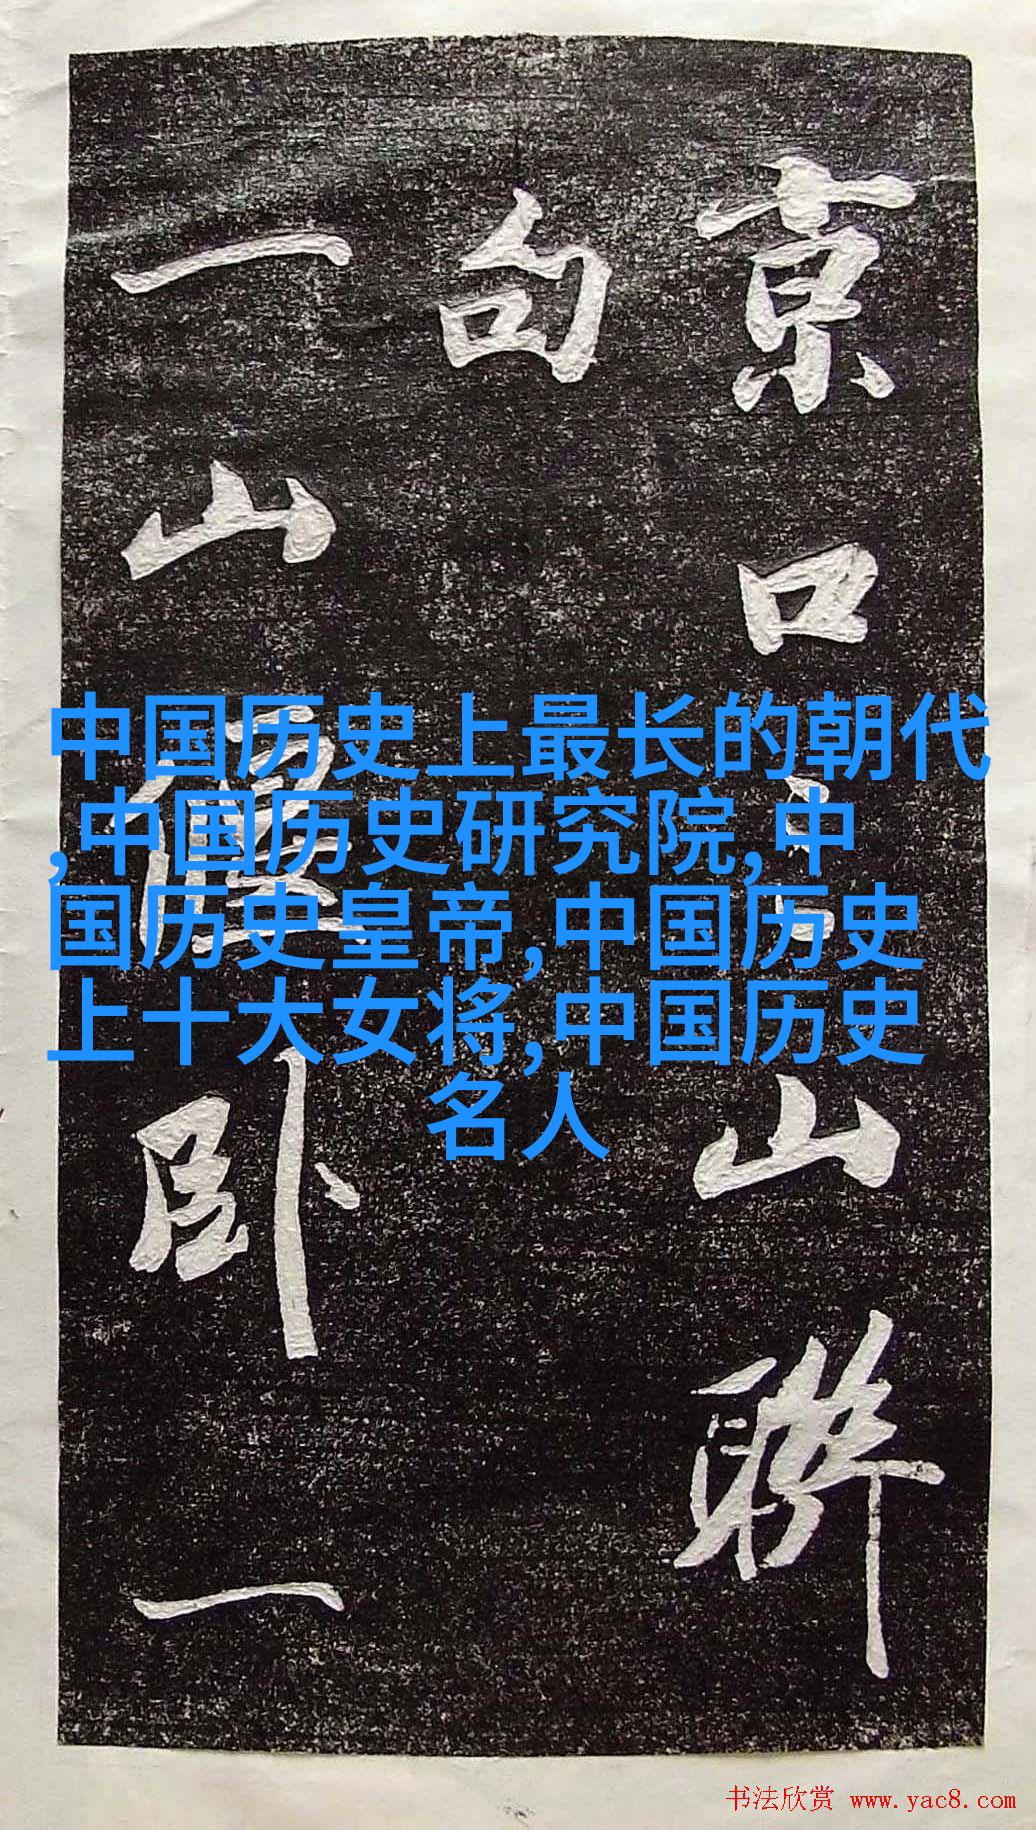 京口山聯
句
一山卧一
中国历史上最长的朝代
,中国历史研究院,中
国历史皇帝,中国历史
上十大女将,中国历史
名人
书法欣赏 www.yac8.com